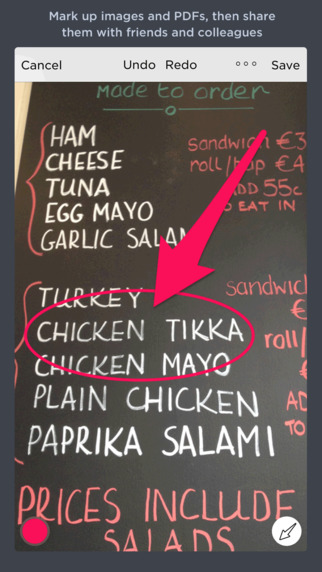 Mark up images and PDFs, then share
them with friends and colleagues
Cancel Undo Redo Save
made to order
HAM
CHEESE
TUNA
EGG MAYO
GARLIC SALAM
sandwich €3
roll/bap €4
ADD 55c
EAT IN
TURKEY
CHICKEN TIKKA
CHICKEN MAYO
PLAIN CHICKEN
PAPRIKA SALAMI
sandwic
€
roll/
AD
TO
PRICES INCLUDE
SALADS